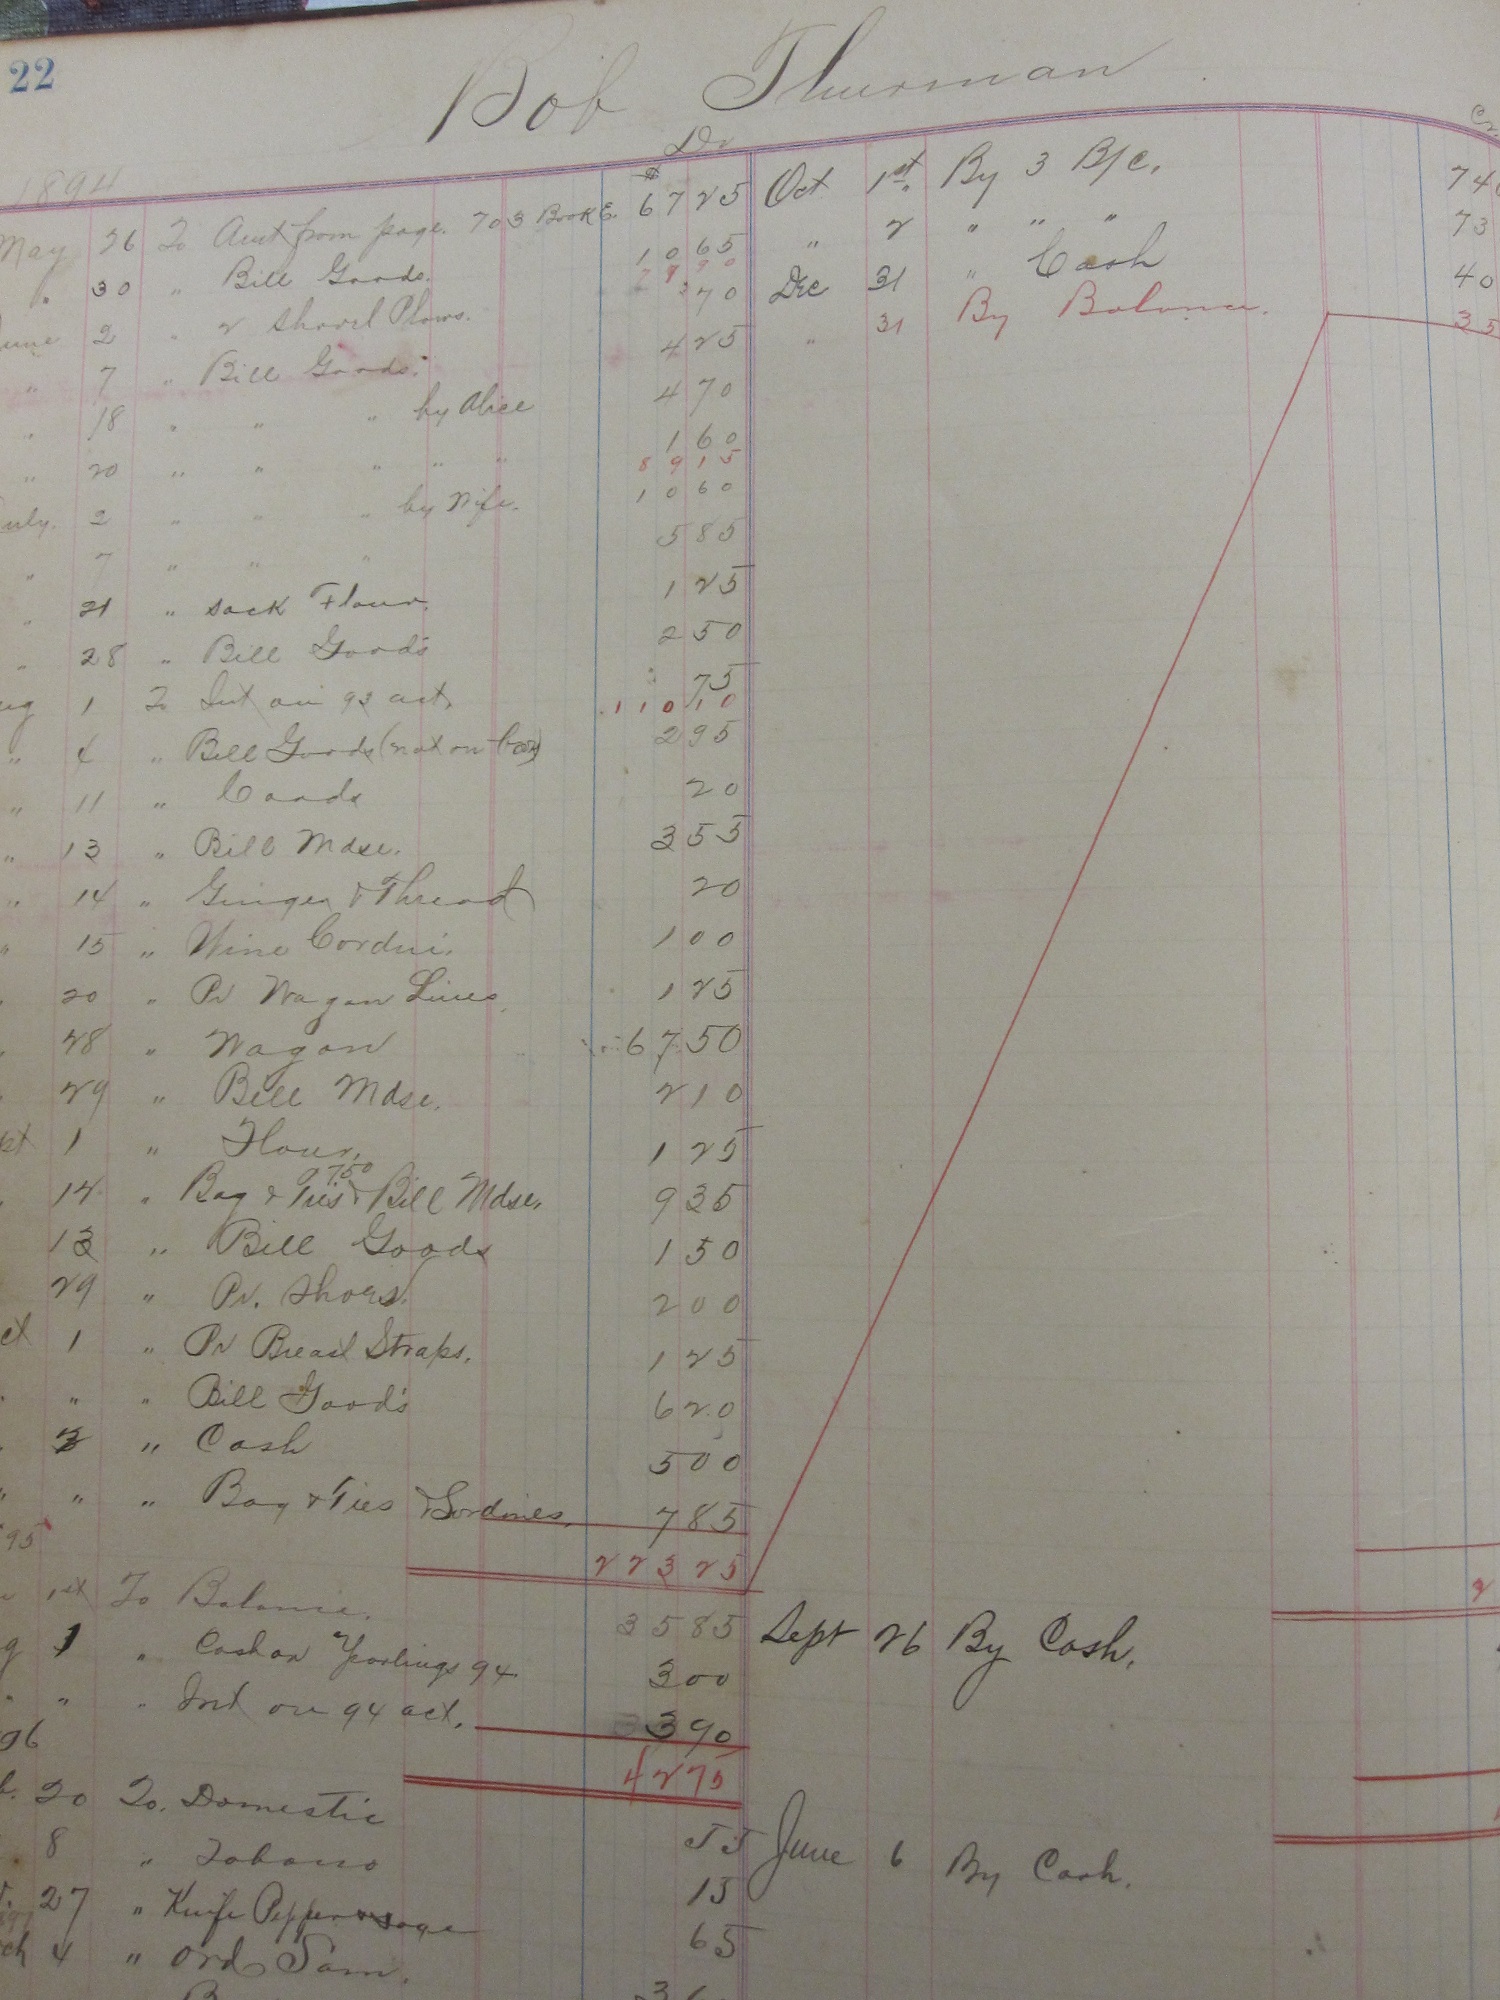 22
Bob Thurman
Dr
1894
May 26 To Amt from page 703 Book E. $ 67 25
" 30 " Bill Goods. 10 65
77 90
June 2 " 2 Shovel Plows. 70
" 7 " Bill Goods. 4 25
" 18 " " " by Alice 4 70
" 20 " " " " " 1 60
89 15
July. 2 " " " by Wife. 10 60
" 7 " " " 5 85
" 21 " Sack Flour. 1 25
" 28 " Bill Goods 2 50
Aug 1 To Int on 93 act. 75
110 10
" 4 " Bill Goods (not on Book) 2 95
" 11 " Goods 20
" 13 " Bill Mdse. 3 55
" 14 " Ginger & Thread 20
" 15 " Wine Cordui. 1 00
" 20 " Pr Wagon Lines. 1 25
" 28 " Wagon 67 50
" 29 " Bill Mdse. 2 10
Sept 1 " Flour. 1 25
" 14 " Bag & Ties 7 50 & Bill Mdse. 9 35
13 " Bill Goods 1 50
29 " Pr. Shoes. 2 00
Oct 1 " Pr Breast Straps. 1 25
" " " Bill Goods 6 20
" 3 " Cash 5 00
" " " Bag & Ties & Sardines. 7 85
223 25
95
1st To Balance. 35 85
Aug 1 " Cash on Yearlings 94. 3 00
" " " Int on 94 act. 3 90
42 75
96
20 To. Domestic 55
8 " Tobacco 15
27 " Knife Pepper & Sage 65
4 " Ord Sam.
Cr.
Oct 1st. By 3 B/c. 74
" 2 " " " 73
Dec 31 " Cash 40
" 31 By Balance. 35
2
Sept 26 By Cash.
June 6 By Cash.